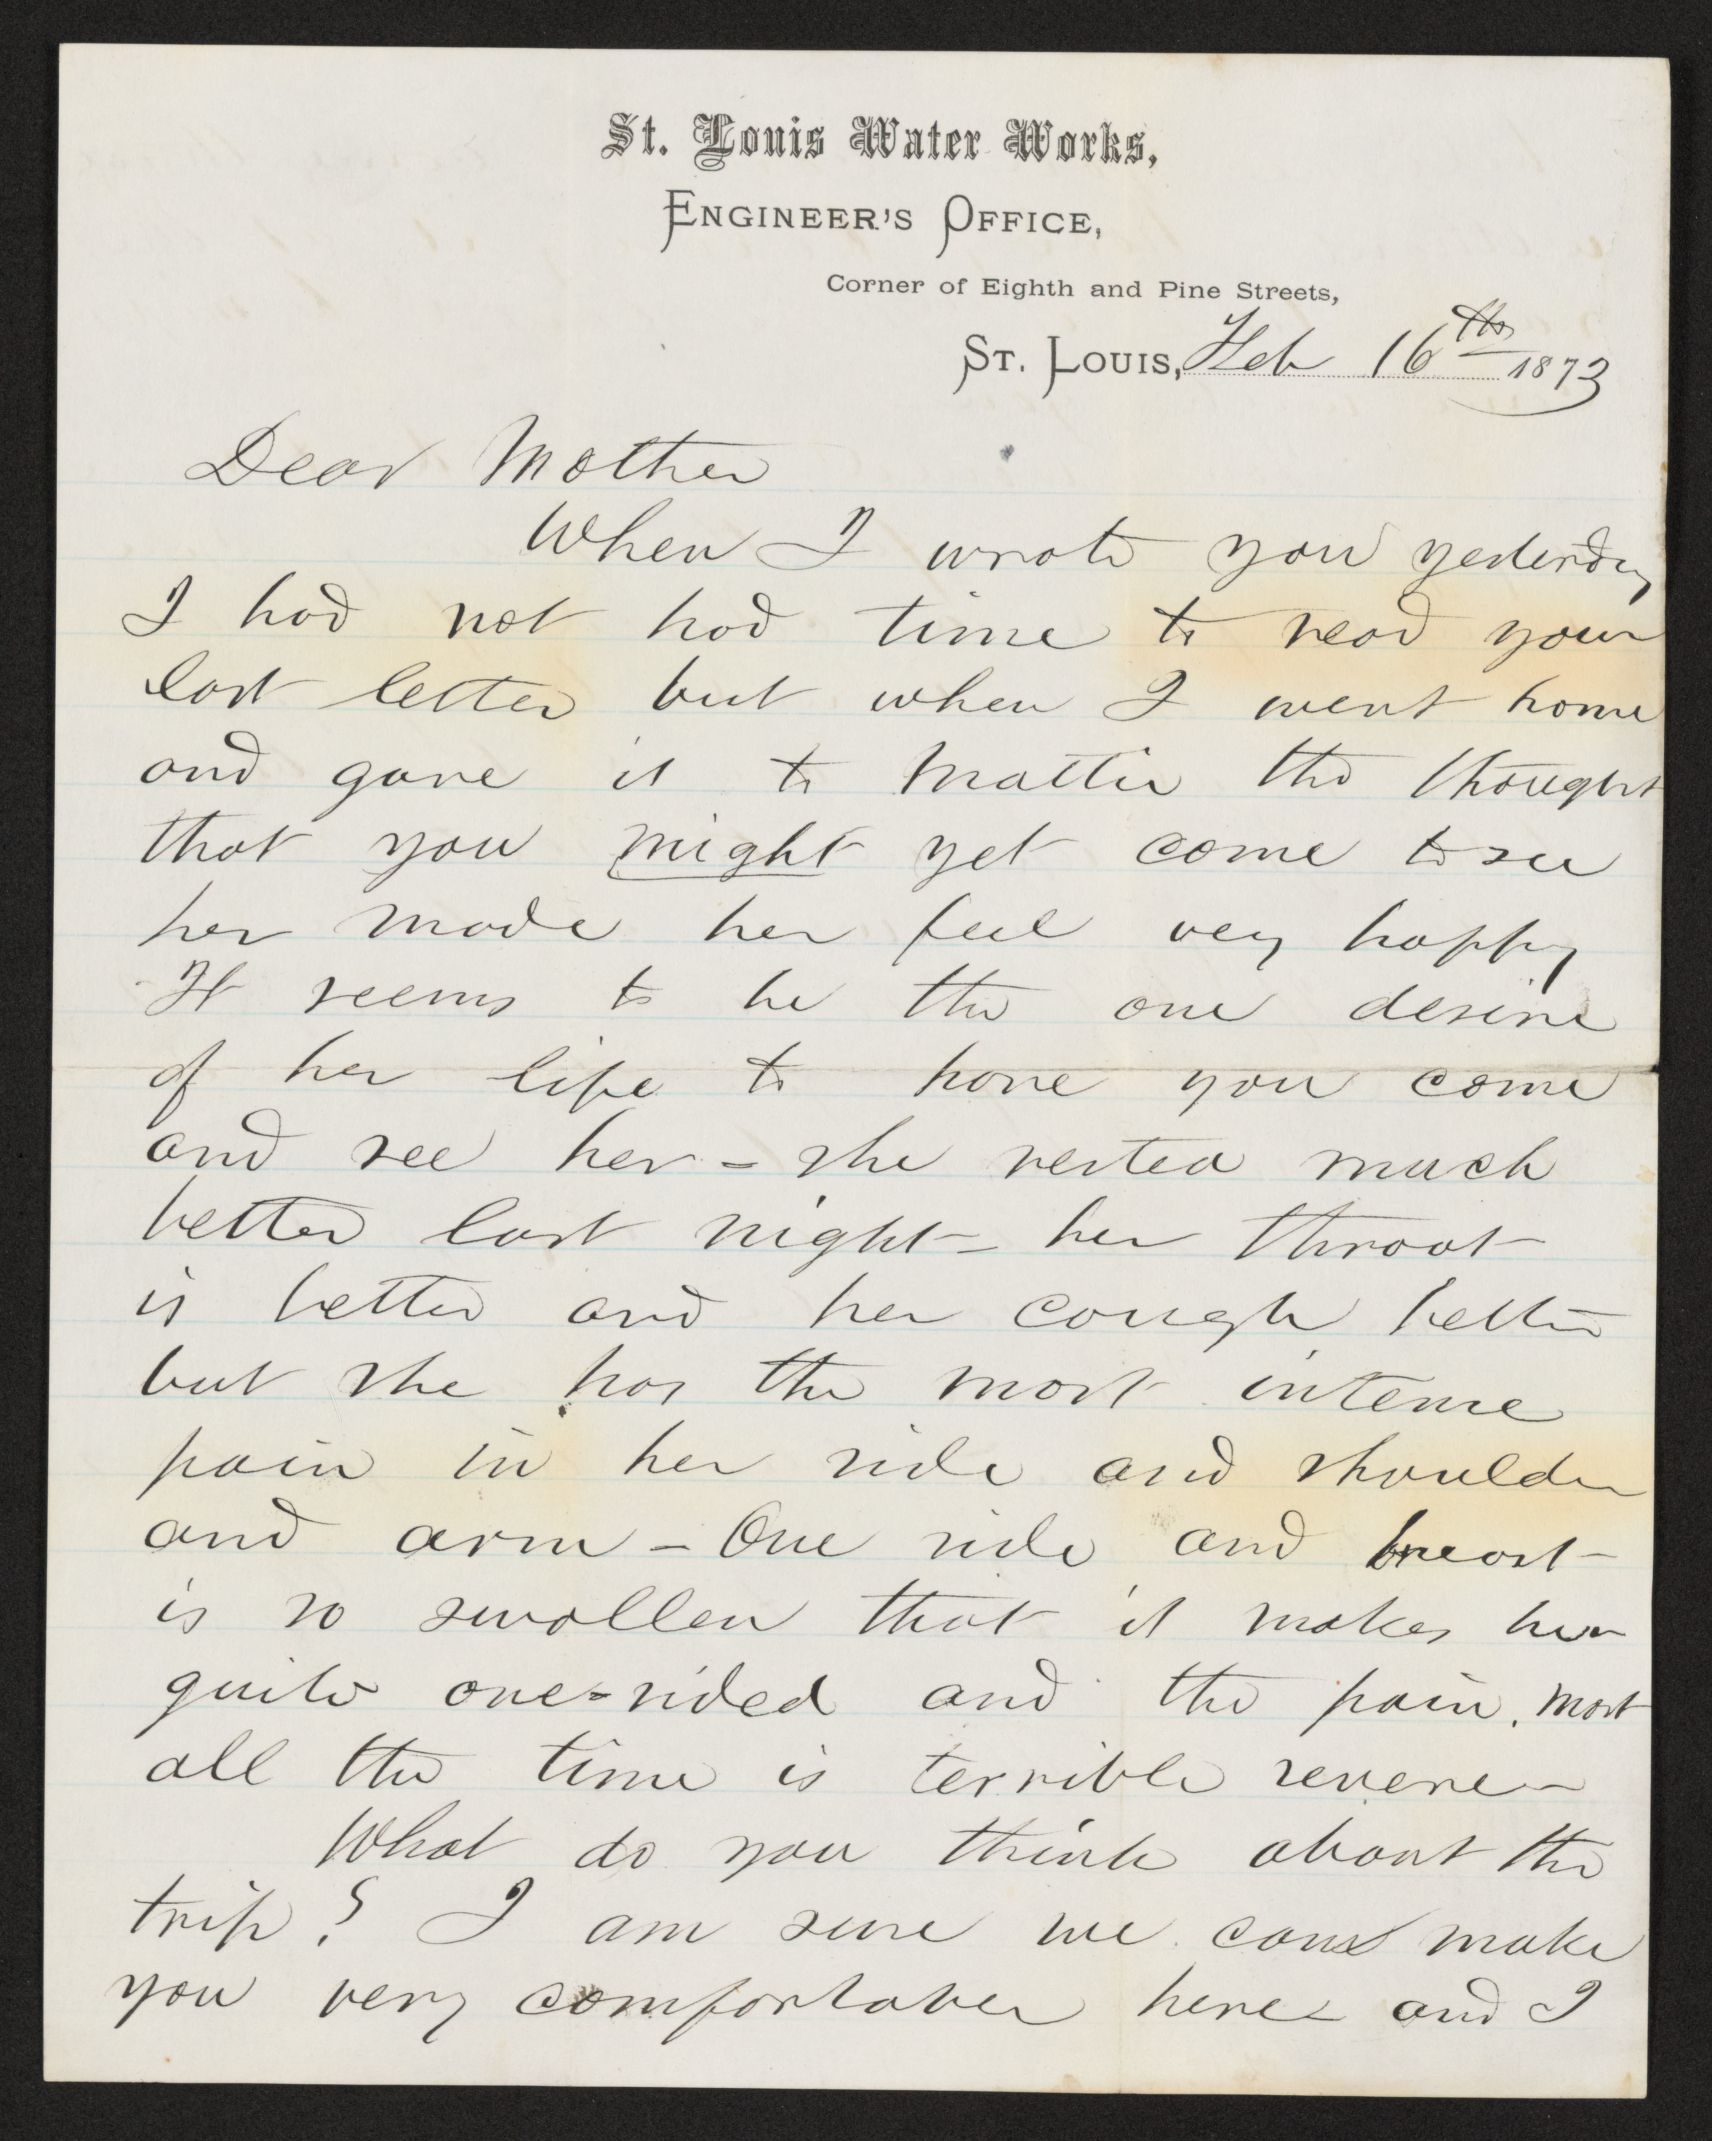 St. Louis Water Works,
Engineer's Office,
Corner of Eighth and Pine Streets,
St. Louis, Feb 16th 1873
Dear Mother
When I wrote you yesterday
I had not had time to read your
last letter but when I went home
and gave it to Mattie the thought
that you might yet come to see
her made her feel very happy
It seems to be the one desire
of her life to have you come
and see her - she rested much
better last night - her throat
is better and her cough better
but she has the most intense
pain in her side and shoulder
and arm - One side and breast
is so swollen that it makes her
quite one-sided and the pain, most
all the time is terrible severe -
What do you think about the
trip? I am sure we can make
you very comfortable here - and I